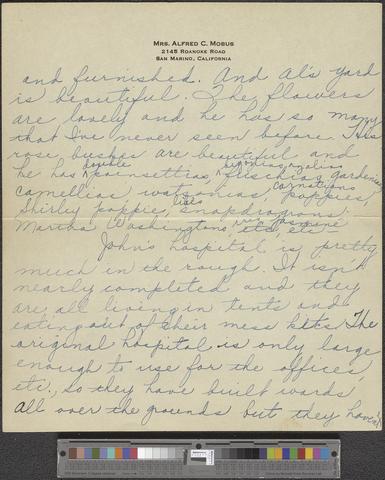 Mrs. Alfred C. Mobus
2145 Roanoke Road
San Marino, California
and furnished. And Al's yard
is beautiful. The flowers
are lovely and he has so many
that I've never seen before. His
rose bushes are beautiful and
double begonias, azalias
he has poinsettias, fuschias, gardenias,
carnations
camellias watsonias, poppies,
lilies
Shirley poppie, snapdragons
iris jasmine
Martha Washingtons, etc, etc —
John's hospital is pretty
much in the rough. It isn't
nearly completed and they
are all living in tents and
eating out of their mess kits. The
original hospital is only large
enough to use for the offices,
etc., so they have built wards
all over the grounds but they haven't